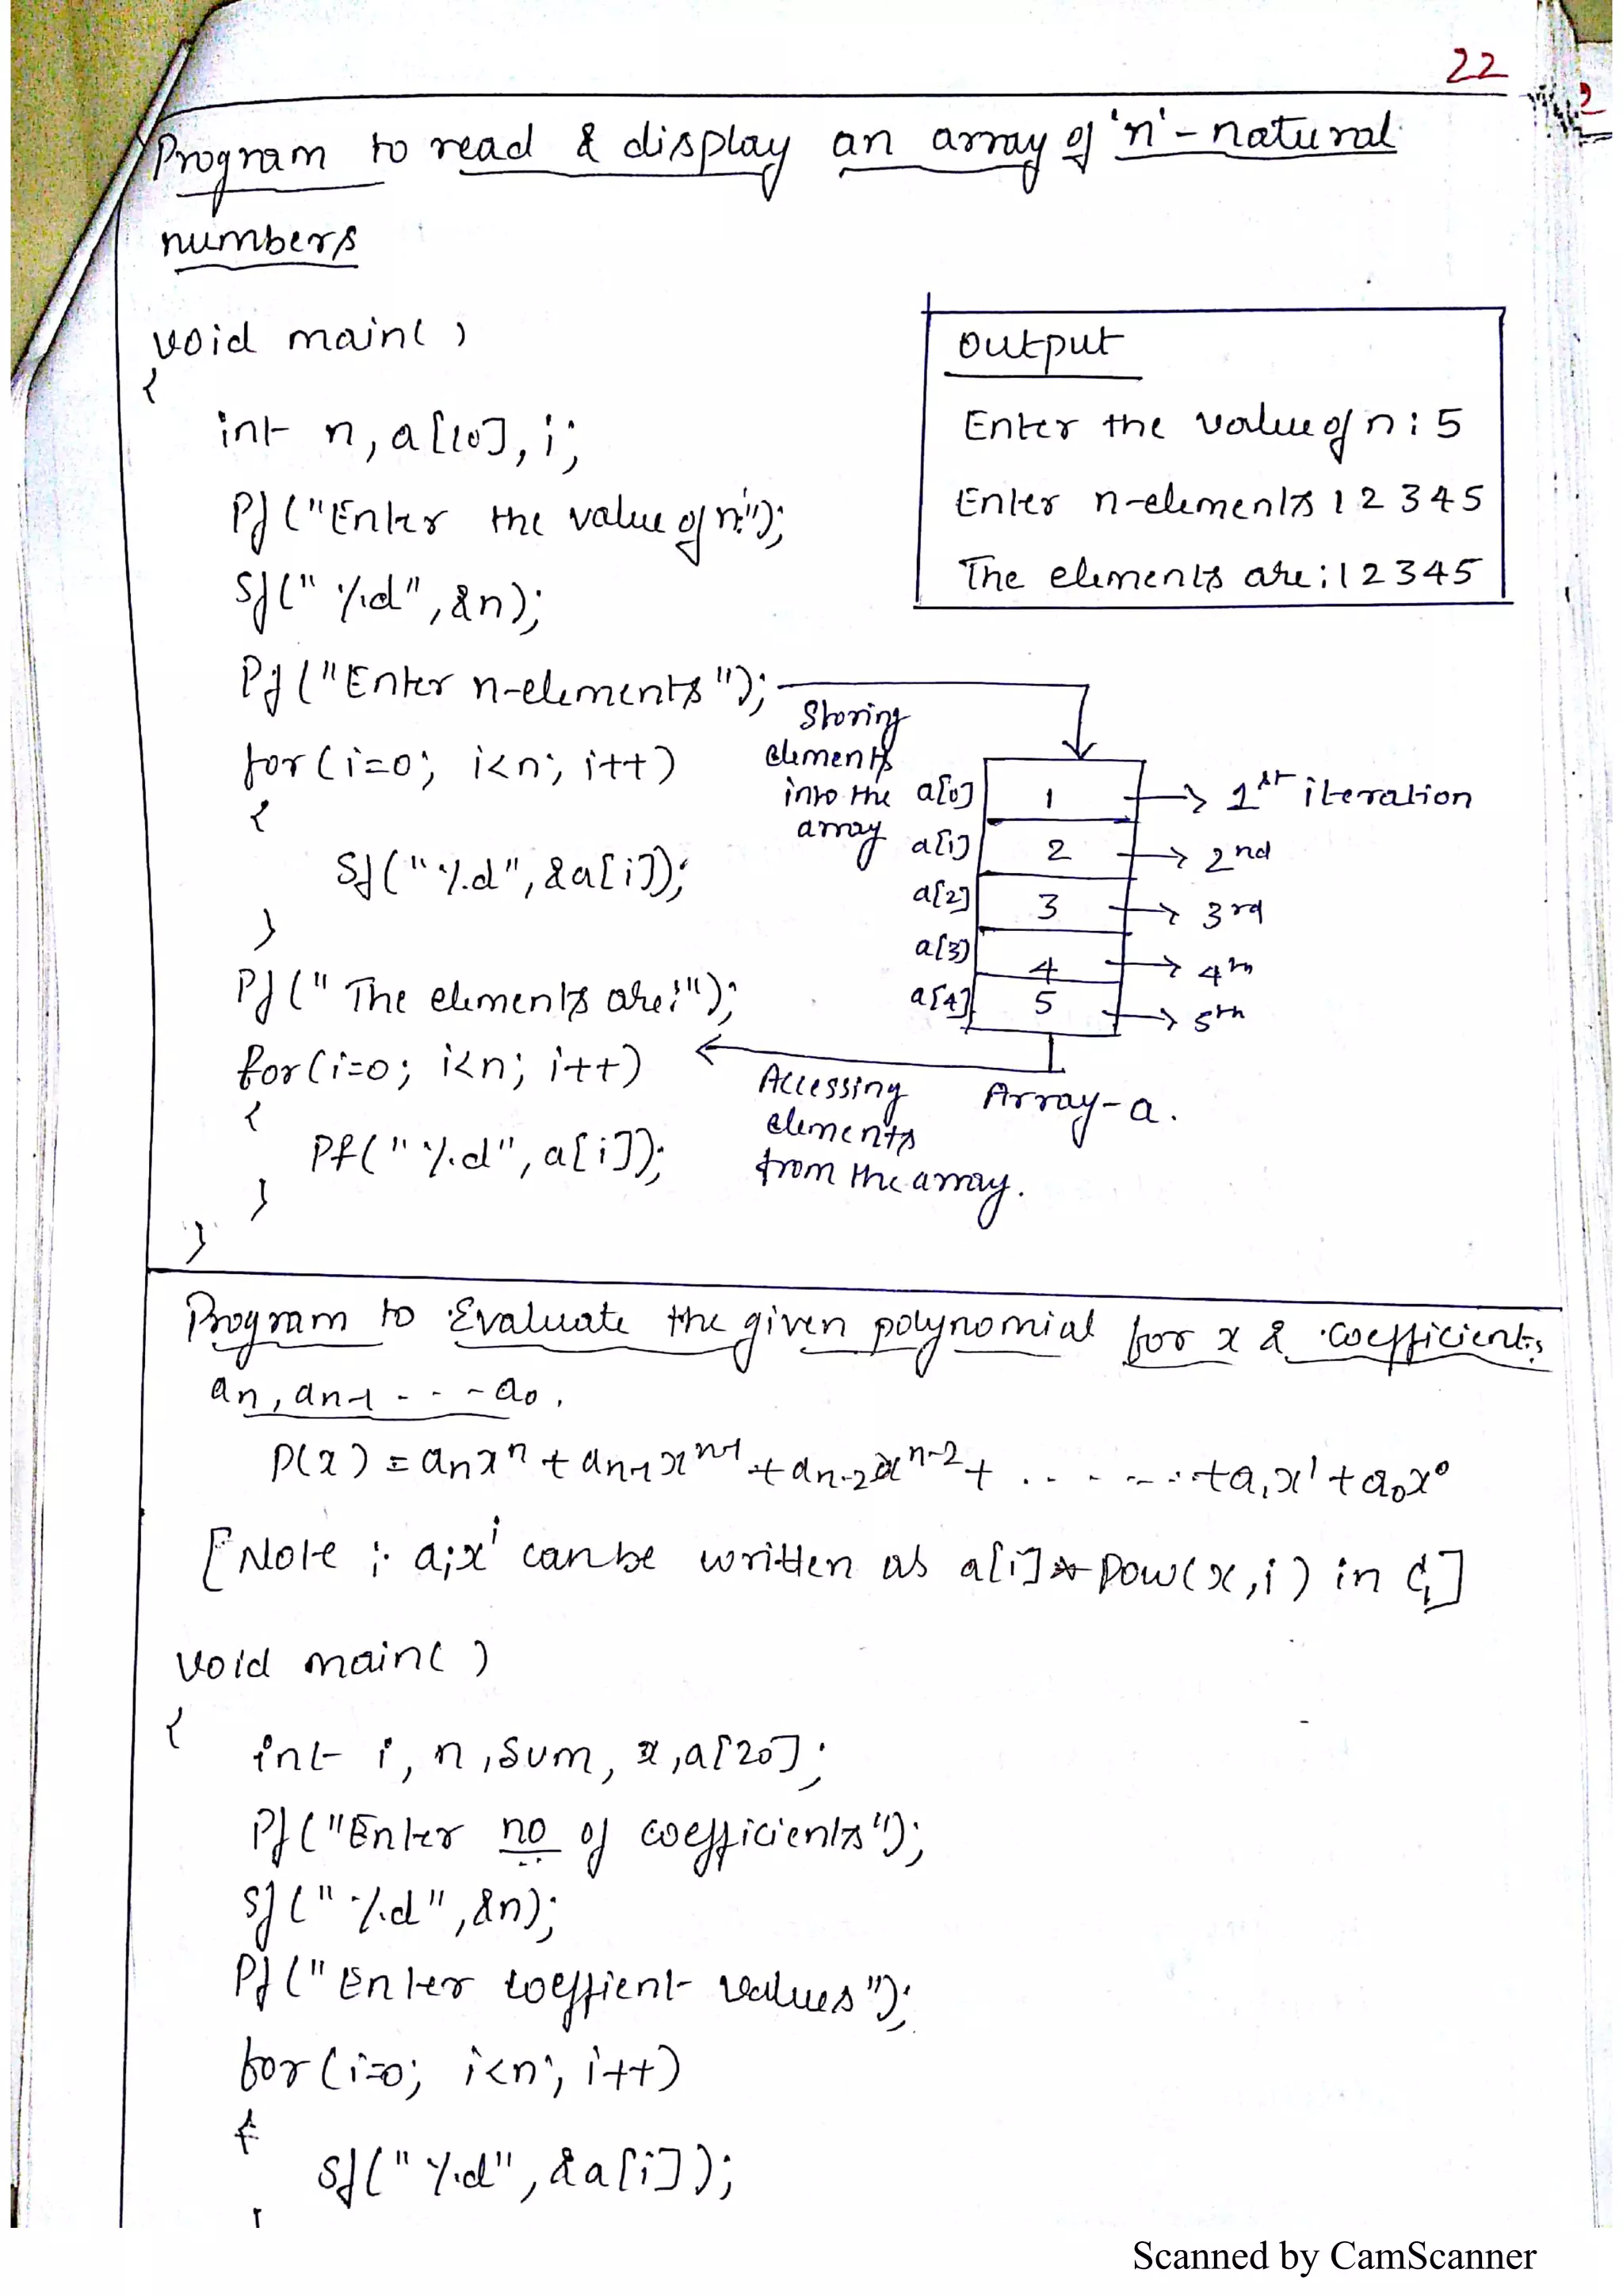 22
2
Program to read & display an array of 'n' - natural
numbers
void main( )
{
int n, a[10], i;
Pf ("Enter the value of n:");
Sf (" %d", &n);
Pf ("Enter n-elements ");
for (i=0; i<n; i++)
{
Sf (" %d", &a[i]);
}
Pf (" The elements are:");
for (i=0; i<n; i++)
{
Pf (" %d", a[i]);
}
}
Output
Enter the value of n : 5
Enter n-elements 1 2 3 4 5
The elements are : 1 2 3 4 5
Storing
elements
into the
array
a[0] 1 → 1st iteration
a[1] 2 → 2nd
a[2] 3 → 3rd
a[3] 4 → 4th
a[4] 5 → 5th
Accessing
elements
from the array.
Array - a.
Program to Evaluate the given polynomial for x & coefficients
an, an-1 - - - a0.
P(x) = anx^n + an-1 x^n-1 + an-2 x^n-2 + . . - - - - . . + a1x^1 + a0x^0
[Note : aix^i can be written as a[i] * pow(x,i) in C]
void main( )
{
int i, n, sum, x, a[20];
Pf ("Enter no of coefficients");
Sf (" %d", &n);
Pf (" Enter coeffient values ");
for (i=0; i<n; i++)
{
Sf (" %d", &a[i]);
Scanned by CamScanner